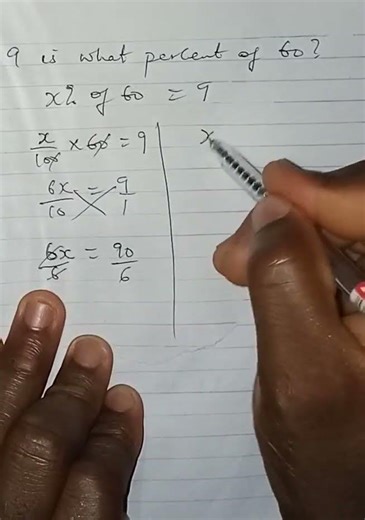 9 is what percent of 60?
x% of 60 = 9
x/100 × 60 = 9
6x/10 = 9/1
6x/6 = 90/6
x